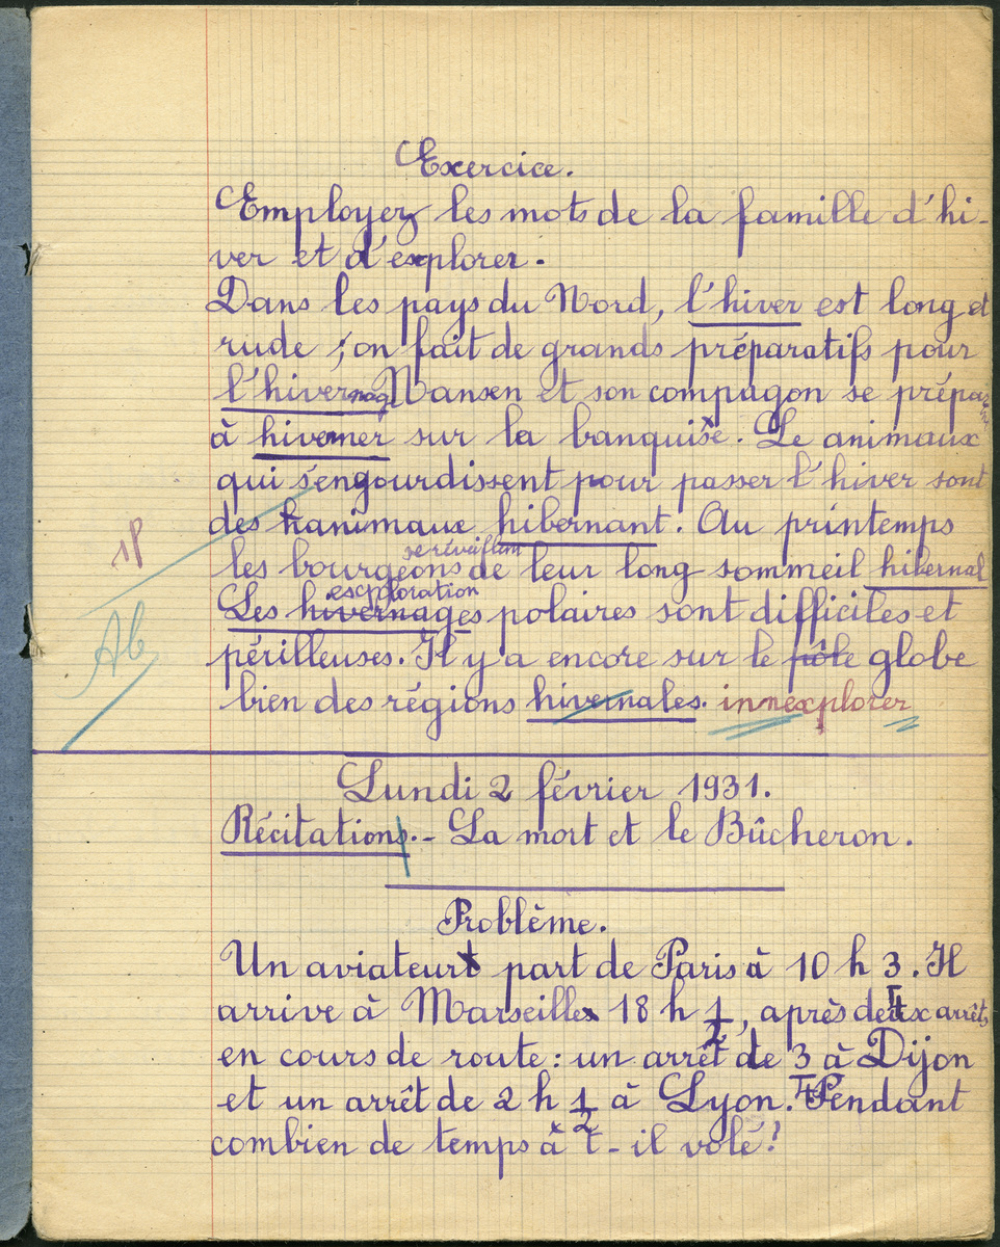 Exercice.
Employez les mots de la famille d'hi-
ver et d'explorer.
Dans les pays du Nord, l'hiver est long et
rude ; on fait de grands préparatifs pour
l'hivernag Nansen et son compagon se prépa
à hiverner sur la banquise. Le animaux
qui s'engourdissent pour passer l'hiver sont
des hanimaux hibernant. Au printemps
18
se réveillent
les bourgeons de leur long sommeil hibernal
exploration
Les hivernages polaires sont difficiles et
Ab
périlleuses. Il y a encore sur le pôle globe
bien des régions hivernales. innexplorer
Lundi 2 février 1931.
Récitations.- La mort et le Bûcheron.
Problème.
Un aviateurt part de Paris à 10 h 3/4. Il
arrive à Marseille 18 h 1/2, après deux arrêts
en cours de route : un arrêt de 3/4 à Dijon
et un arrêt de 2 h 1/2 à Lyon. Pendant
combien de temps à t-il volé?